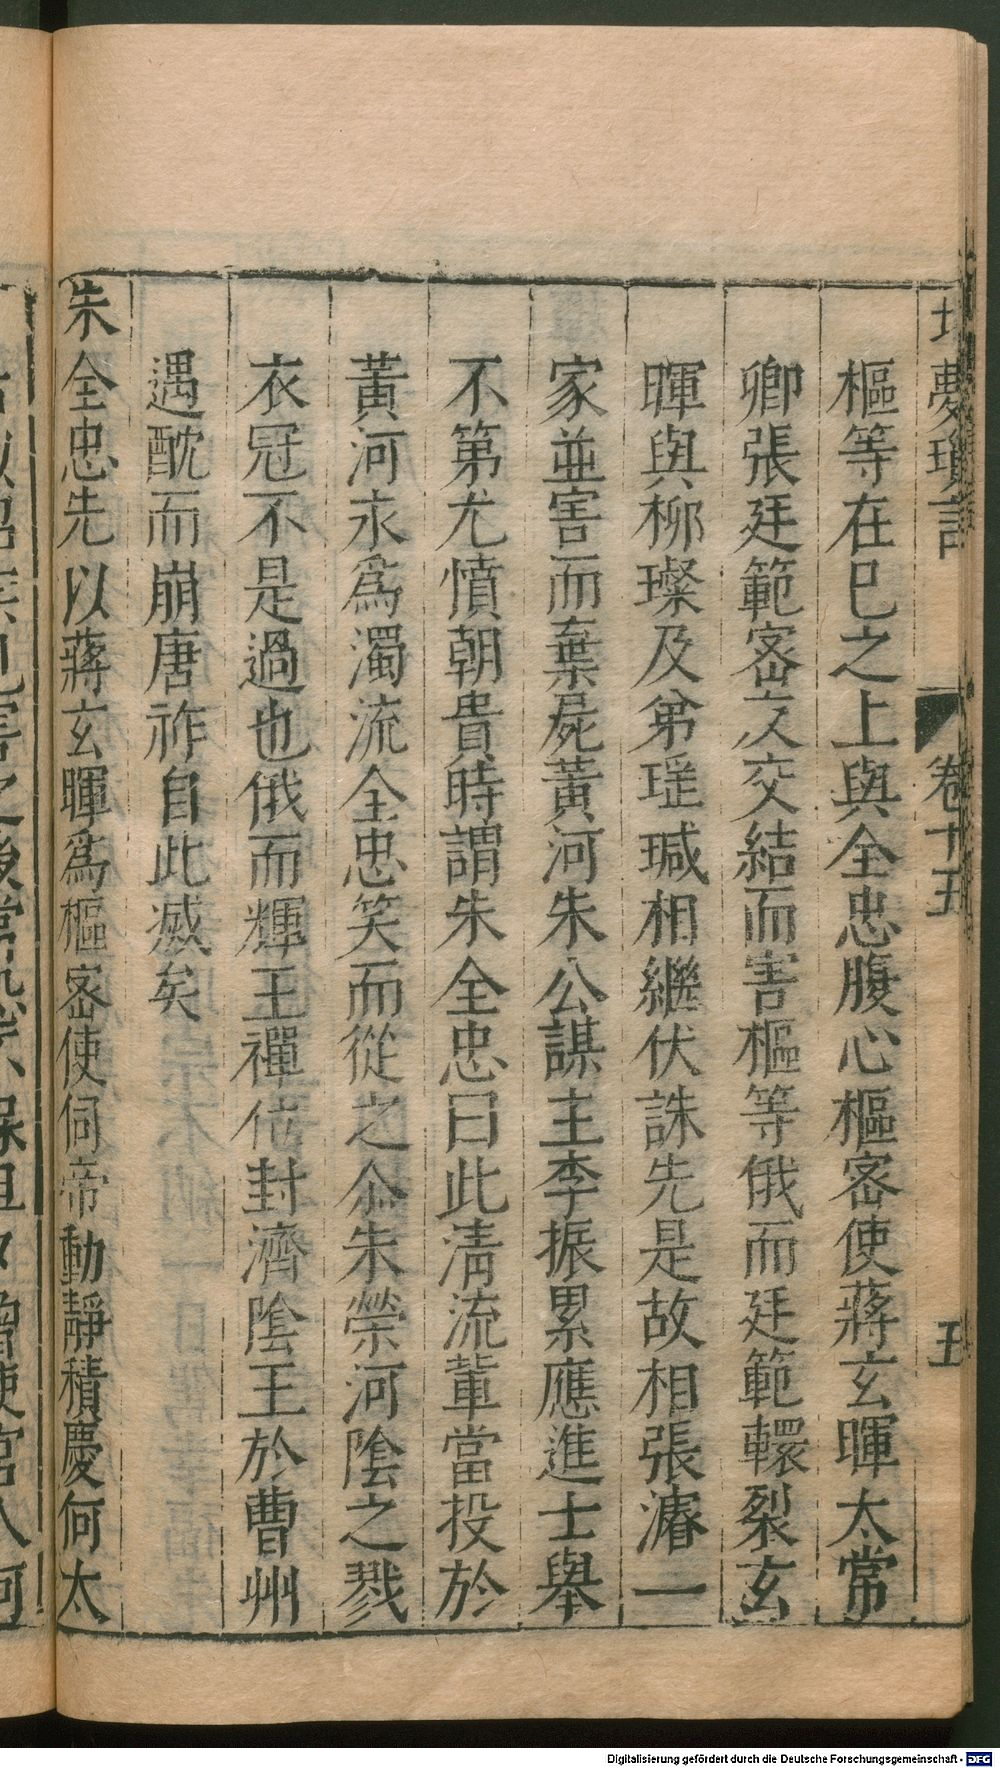 夢瑣言 卷十五 五
樞等在巳之上與全忠腹心樞密使蔣玄暉太常
卿張廷範密又交結而害樞等俄而廷範轘裂玄
暉與柳璨及弟瑳瑊相繼伏誅先是故相張濬一
家並害而棄屍黃河朱公謀主李振累應進士舉
不第尤憤朝貴時謂朱全忠曰此清流輩當投於
黃河永爲濁流全忠笑而從之尒朱榮河陰之戮
衣冠不是過也俄而輝王禪位封濟陰王於曹州
遇酖而崩唐祚自此滅矣
朱全忠先以蔣玄暉爲樞密使伺帝動靜積慶何太
Digitalisierung gefördert durch die Deutsche Forschungsgemeinschaft - DFG